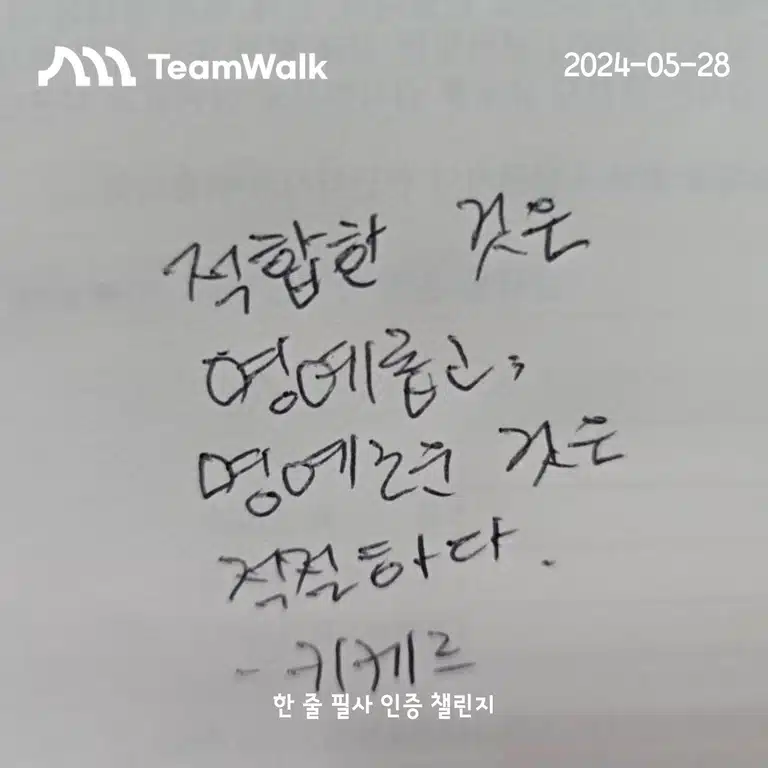 TeamWalk
2024-05-28
적합한 것은
명예롭고,
명예로운 것은
적절하다.
- 키케로
한 줄 필사 인증 챌린지